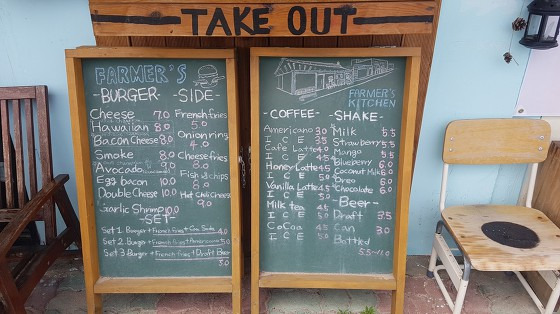 TAKE OUT
FARMER'S
-BURGER-
Cheese 7.0
Hawaiian 8.0
Bacon Cheese 8.0
Smoke 8.0
Avocado 9.0
Egg bacon 10.0
Double Cheese 10.0
Garlic Shrimp 10.0
-SIDE-
French fries
5.0
Onion ring
4.0
Cheese fries
8.0
Fish & chips
8.0
Hot Chili cheese
9.0
-SET-
Set 1. Burger + French fries + Can Soda 4.0
Set 2. Burger + French fries + Americano 5.0
Set 3. Burger + French fries + Draft Beer
5.0
FARMER'S
KITCHEN
-COFFEE-
Americano 3.0
ICE 3.5
Cafe Latte 4.0
ICE 4.5
Honey Latte 4.5
ICE 5.0
Vanilla Latte 4.5
ICE 5.0
Milk tea 4.5
ICE 5.0
CoCoa 4.5
ICE 5.0
-SHAKE-
Milk 5.5
Strawberry 5.5
Mango 5.5
Blueberry 6.0
Coconut Milk 6.0
Oreo 6.0
Chocolate 6.0
-Beer-
Draft 3.5
Can 3.0
Bottled
5.5~11.0